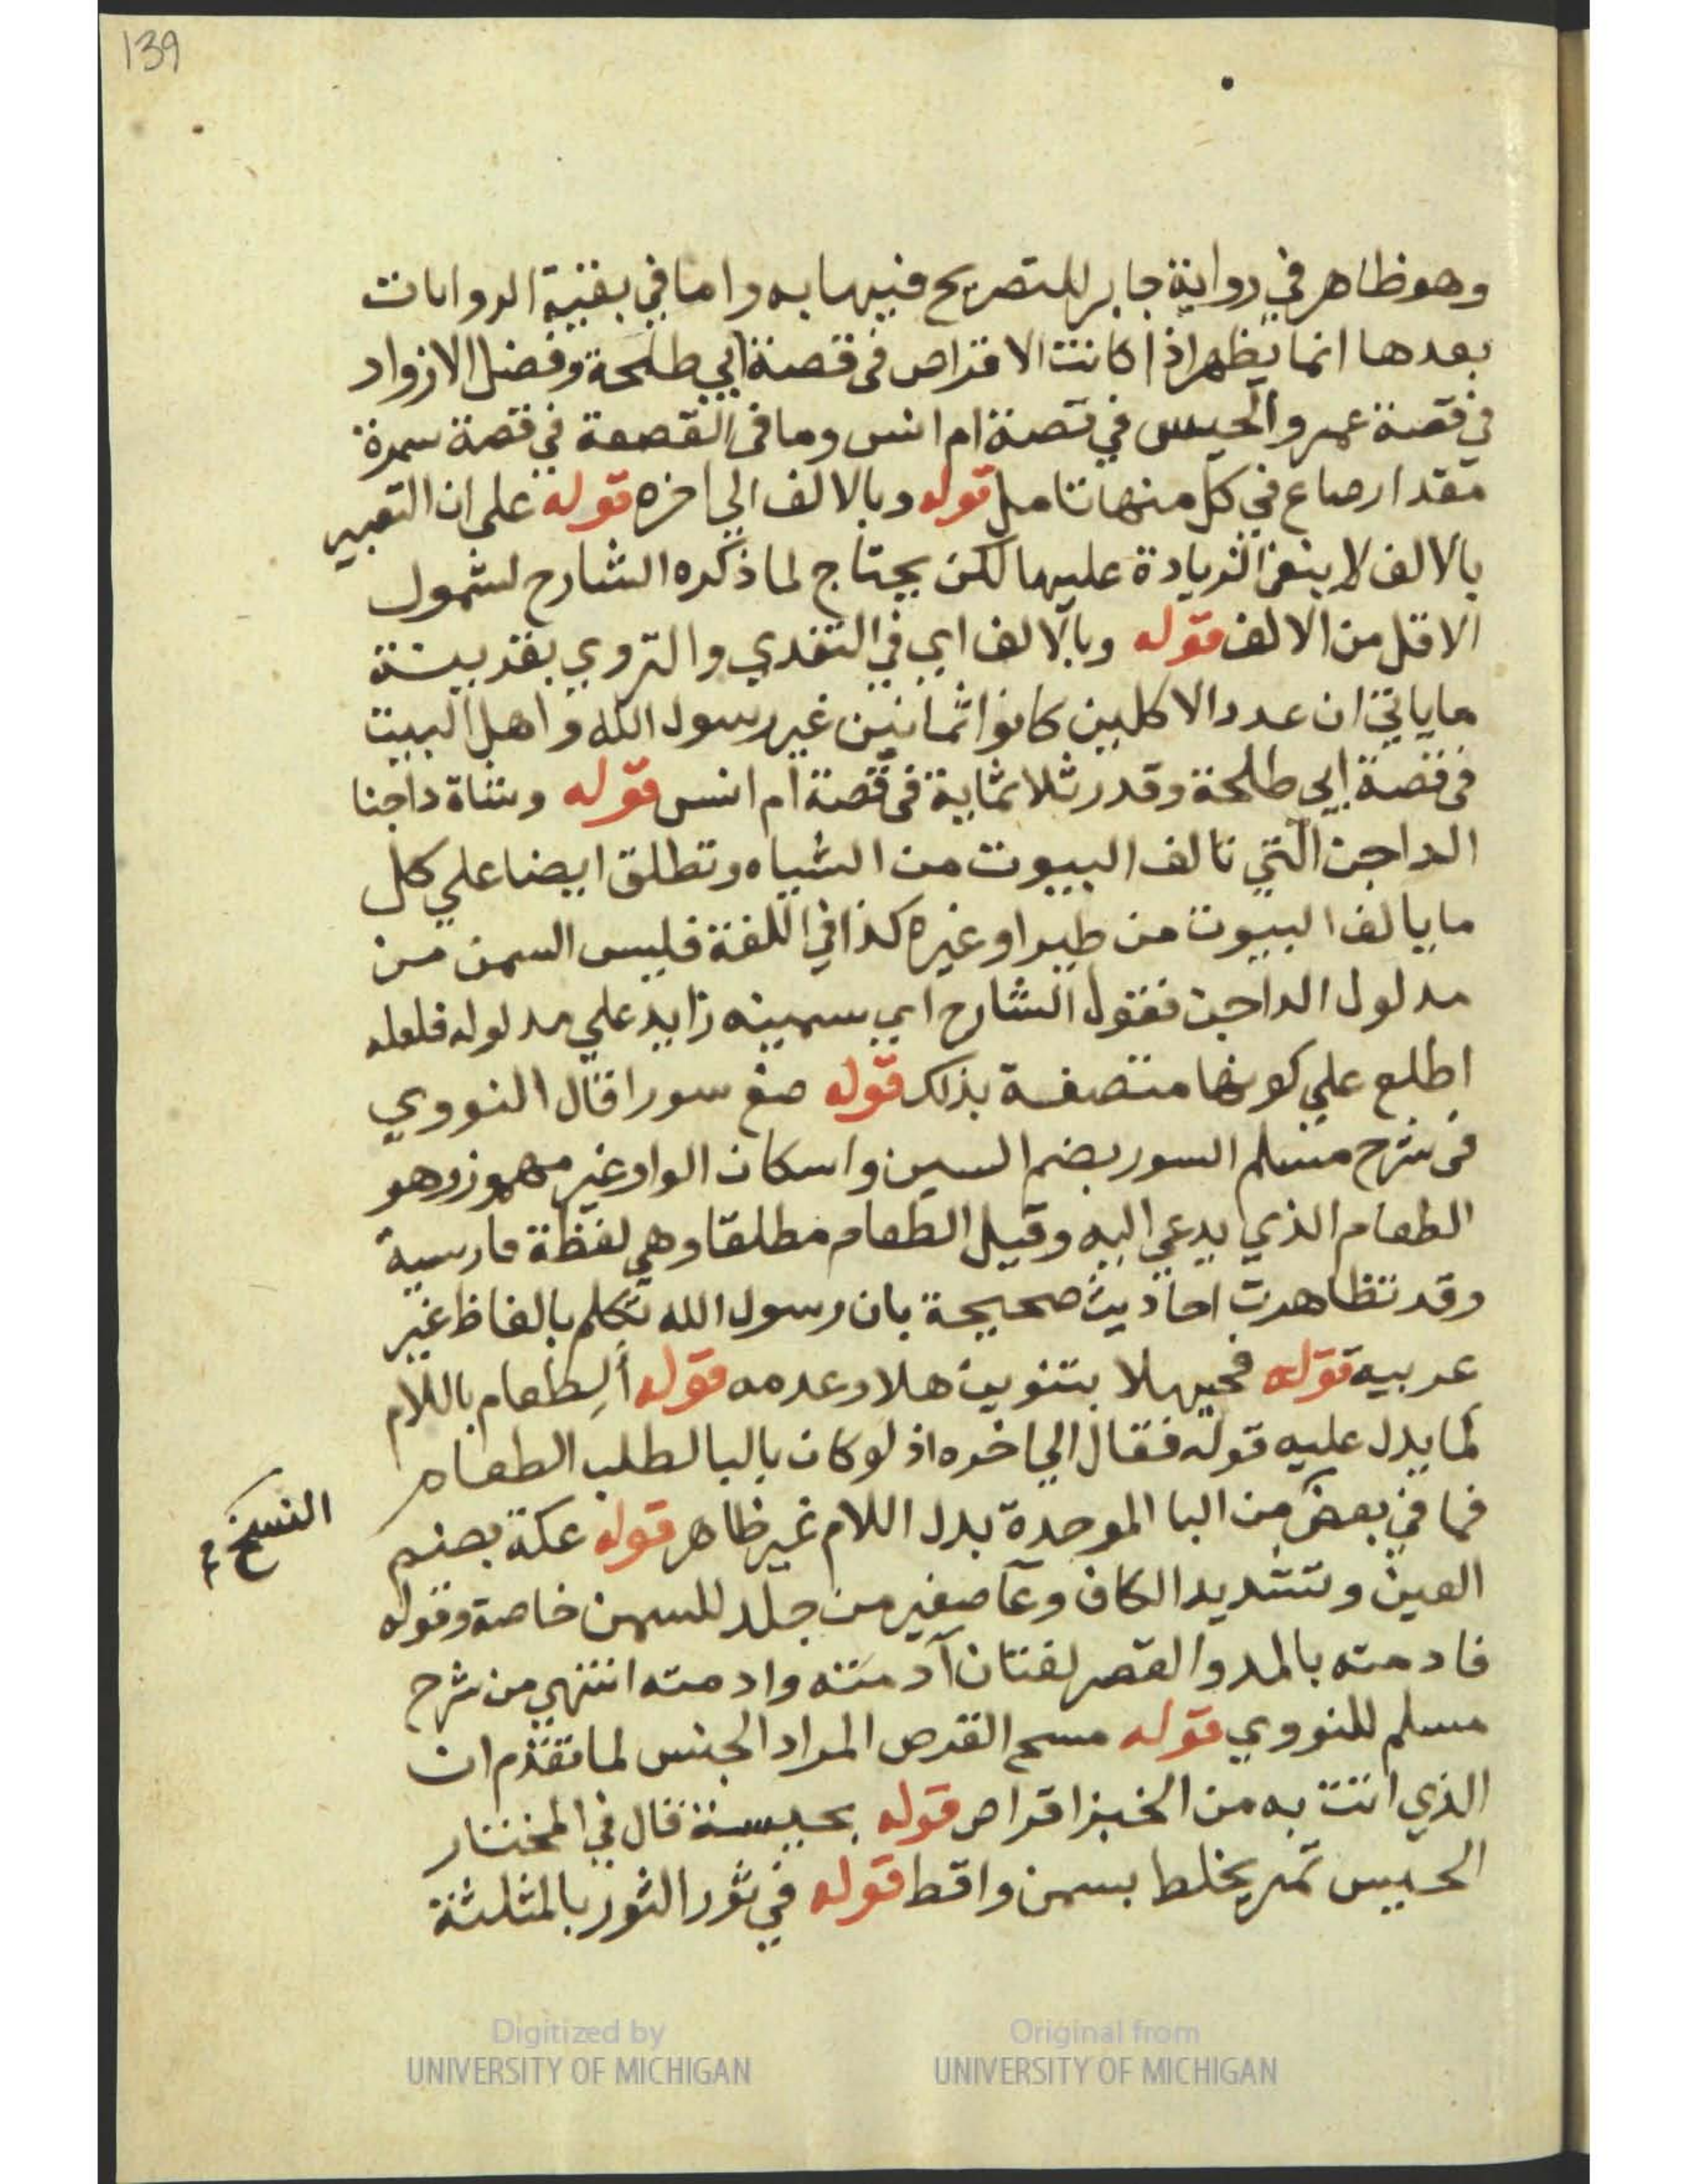 139
وهو ظاهر في رواية جابر للتصريح فيها به واما في بقية الروايات
بعدها انما يظهر اذا كانت الاقراص فى قصة ابي طلحة وفضل الازواد
في قصة عمر والحيس في قصة ام انس وما فى القصعة في قصة سمرة
مقدار صاع في كل منها تامل قوله وبالالف الي اخره قوله على ان التعبير
بالالف لا ينفى الزيادة عليها لكن يحتاج لما ذكره الشارح لشمول
الاقل من الالف قوله وبالالف اي في التغدي والتروي بقرينة
ما ياتي ان عدد الاكلين كانوا ثمانين غير رسول الله واهل البيت
فى قصة ابي طلحة وقدر ثلاثماية فى قصة ام انس قوله وشاة داجنا
الداجن التي تالف البيوت من الشياه وتطلق ايضا علي كل
ما يالف البيوت من طير او غيره كذا في اللغة فليس السمن من
مدلول الداجن فقول الشارح اي سمينه زايد علي مدلوله فلعله
اطلع علي كونها متصفة بذلك قوله صنع سورا قال النووي
فى شرح مسلم السور بضم السين واسكان الواو غير مهموز وهو
الطعام الذي يدعي اليه وقيل الطعام مطلقا وهي لفظة فارسية
وقد تظاهرت احاديث صحيحة بان رسول الله تكلم بالفاظ غير
عربية قوله فحيهلا بتنوين هلا وعدمه قوله ألِطعام باللام
لما يدل عليه قوله فقال الي اخره اذ لو كان بالبا لطلب الطعام
فما في بعض من البا الموحدة بدل اللام غير ظاهر قوله عكة بضم
النسخ
العين وتشديد الكاف وعآ صغير من جلد للسمن خاصة وقوله
فادمته بالمد والقصر لغتان آدمته وادمته انتهي من شرح
مسلم للنووي قوله مسح القرص المراد الجنس لما تقدم ان
الذي اتت به من الخبز اقراص قوله بحيسة قال في المختار
الحيس تمر يخلط بسمن واقط قوله في تور الثور بالمثلثة
Digitized by
UNIVERSITY OF MICHIGAN
Original from
UNIVERSITY OF MICHIGAN